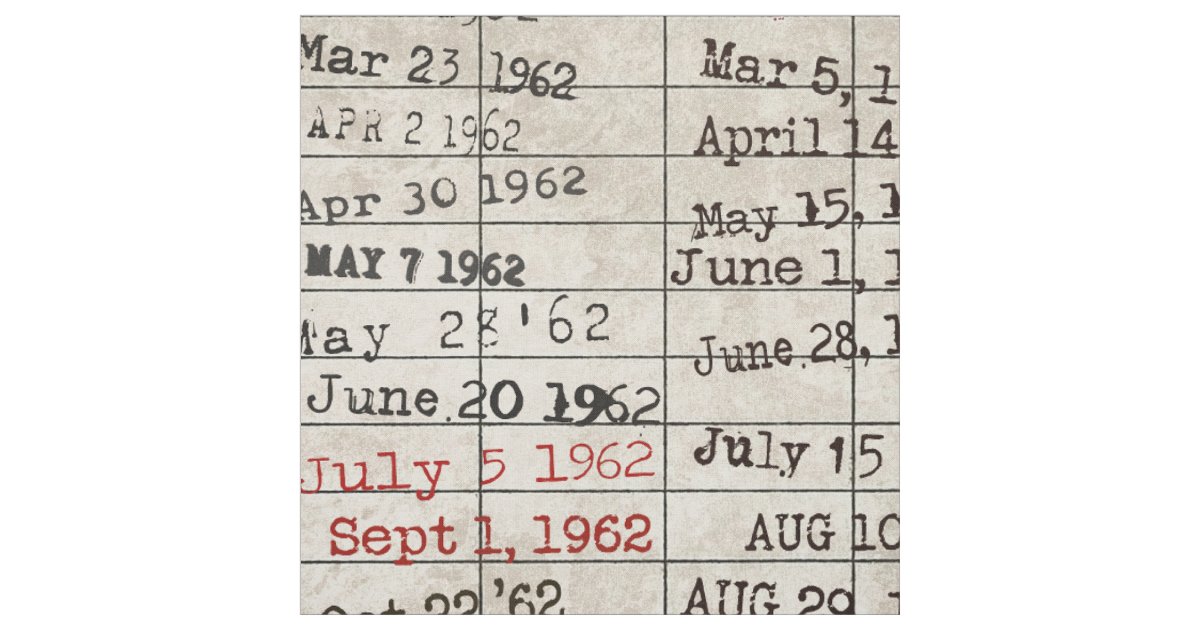 Mar 23 1962
APR 2 1962
Apr 30 1962
MAY 7 1962
May 28 '62
June 20 1962
July 5 1962
Sept 1, 1962
Oct 22 '62
Mar 5, 1
April 14
May 15, 1
June 1, 1
June 28, 1
July 15
AUG 10
AUG 29